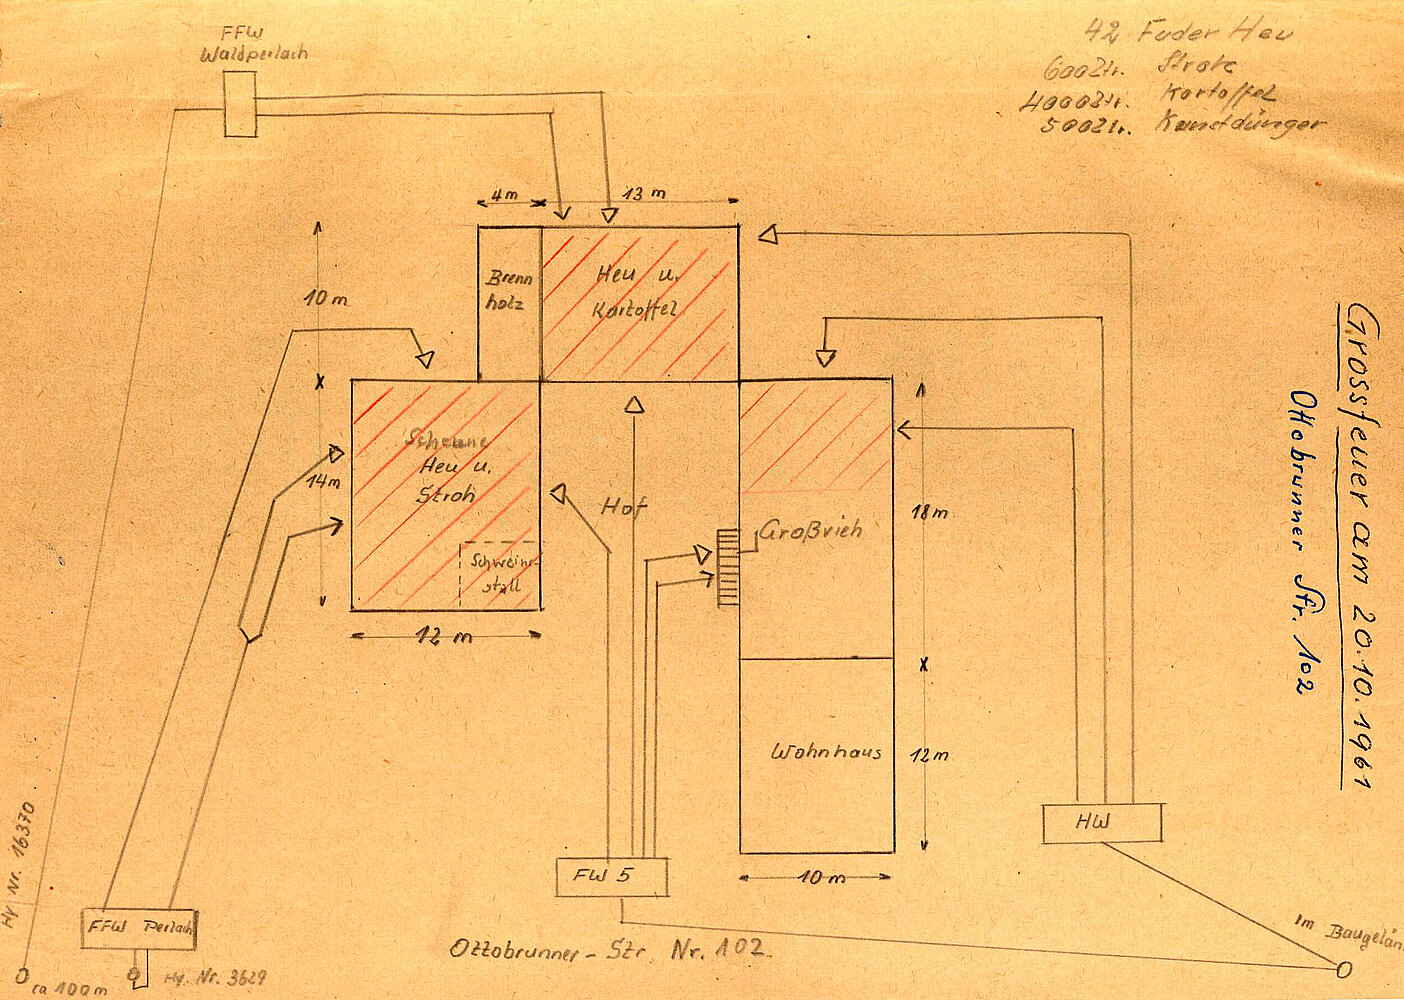 FFW
Waldperlach
42 Fuder Heu
600 Ztr. Stroh
4000 Ztr. Kartoffel
500 Ztr. Kunstdünger
4 m
13 m
10 m
Brenn
holz
Heu u.
Kartoffel
Grossfeuer am 20.10.1961
Ottobrunner Str. 102
Scheune
Heu u.
Stroh
14 m
Hof
Großvieh
18 m
Schweine-
stall
12 m
Wohnhaus
12 m
HW
10 m
FW 5
Hy. Nr. 16370
FFW Perlach
Im Baugelän
Ottobrunner - Str. Nr. 102.
ca 100 m
Hy. Nr. 3629